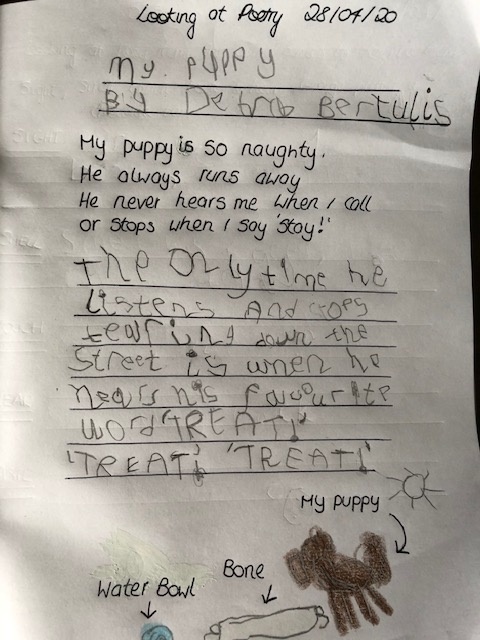 Looking at Poetry 28/04/20
My PUPPY
By Debra Bertulis
My puppy is so naughty.
He always runs away
He never hears me when I call
or stops when I say 'stay!'
The Only time he
Listens And stops
tearing down the
Street is when he
hears his favourite
word 'TREAT!'
'TREAT! 'TREAT!'
My puppy
Bone
Water Bowl